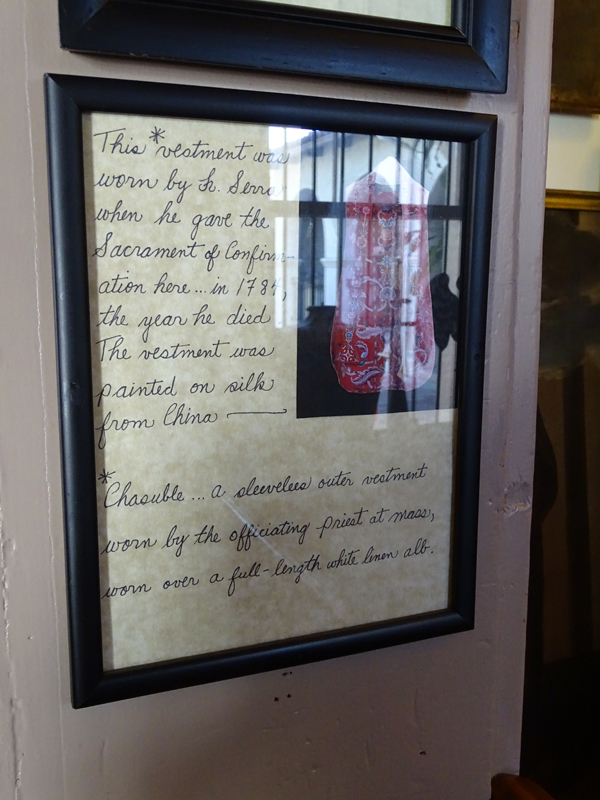 This *vestment was
worn by Fr. Serra
when he gave the
Sacrament of Confirm-
ation here... in 1784,
the year he died
The vestment was
painted on silk
from China
*
Chasuble... a sleevelees outer vestment
worn by the officiating priest at mass,
worn over a full-length white linen alb.